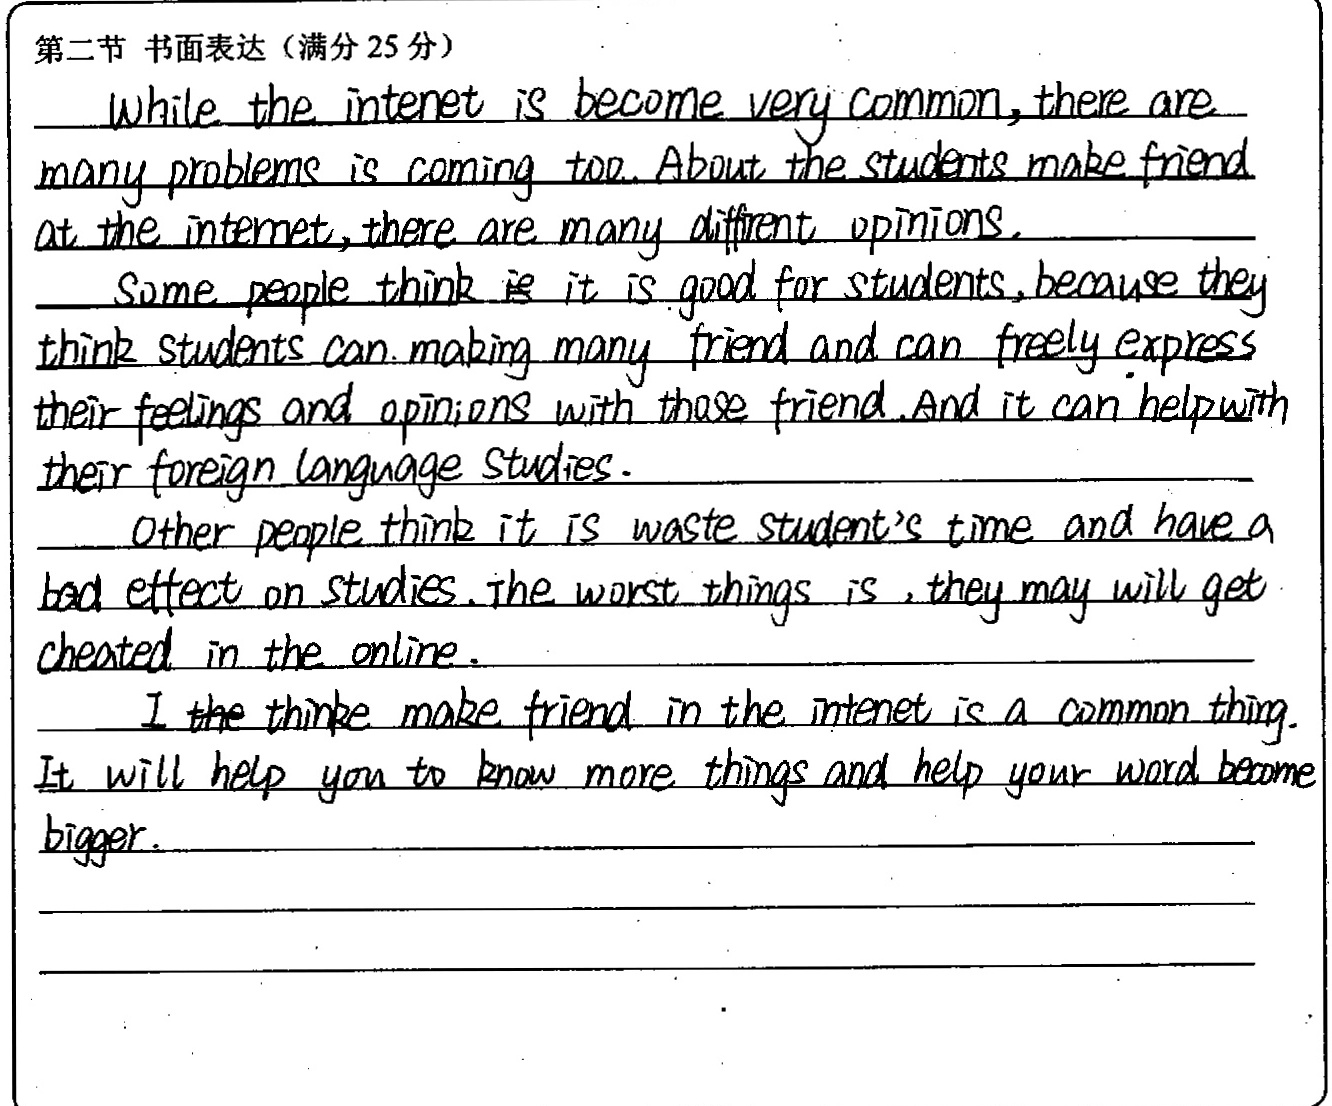 第二节 书面表达（满分 25 分）
While the intenet is become very common, there are
many problems is coming too. About the students make friend
at the internet, there are many diffrent opinions.
Some people think is it is good for students, because they
think students can making many friend and can freely express
their feelings and opinions with those friend. And it can help with
their foreign language studies.
Other people think it is waste student's time and have a
bad effect on studies. The worst things is, they may will get
cheated in the online.
I the thinke make friend in the intenet is a common thing.
It will help you to know more things and help your word become
bigger.